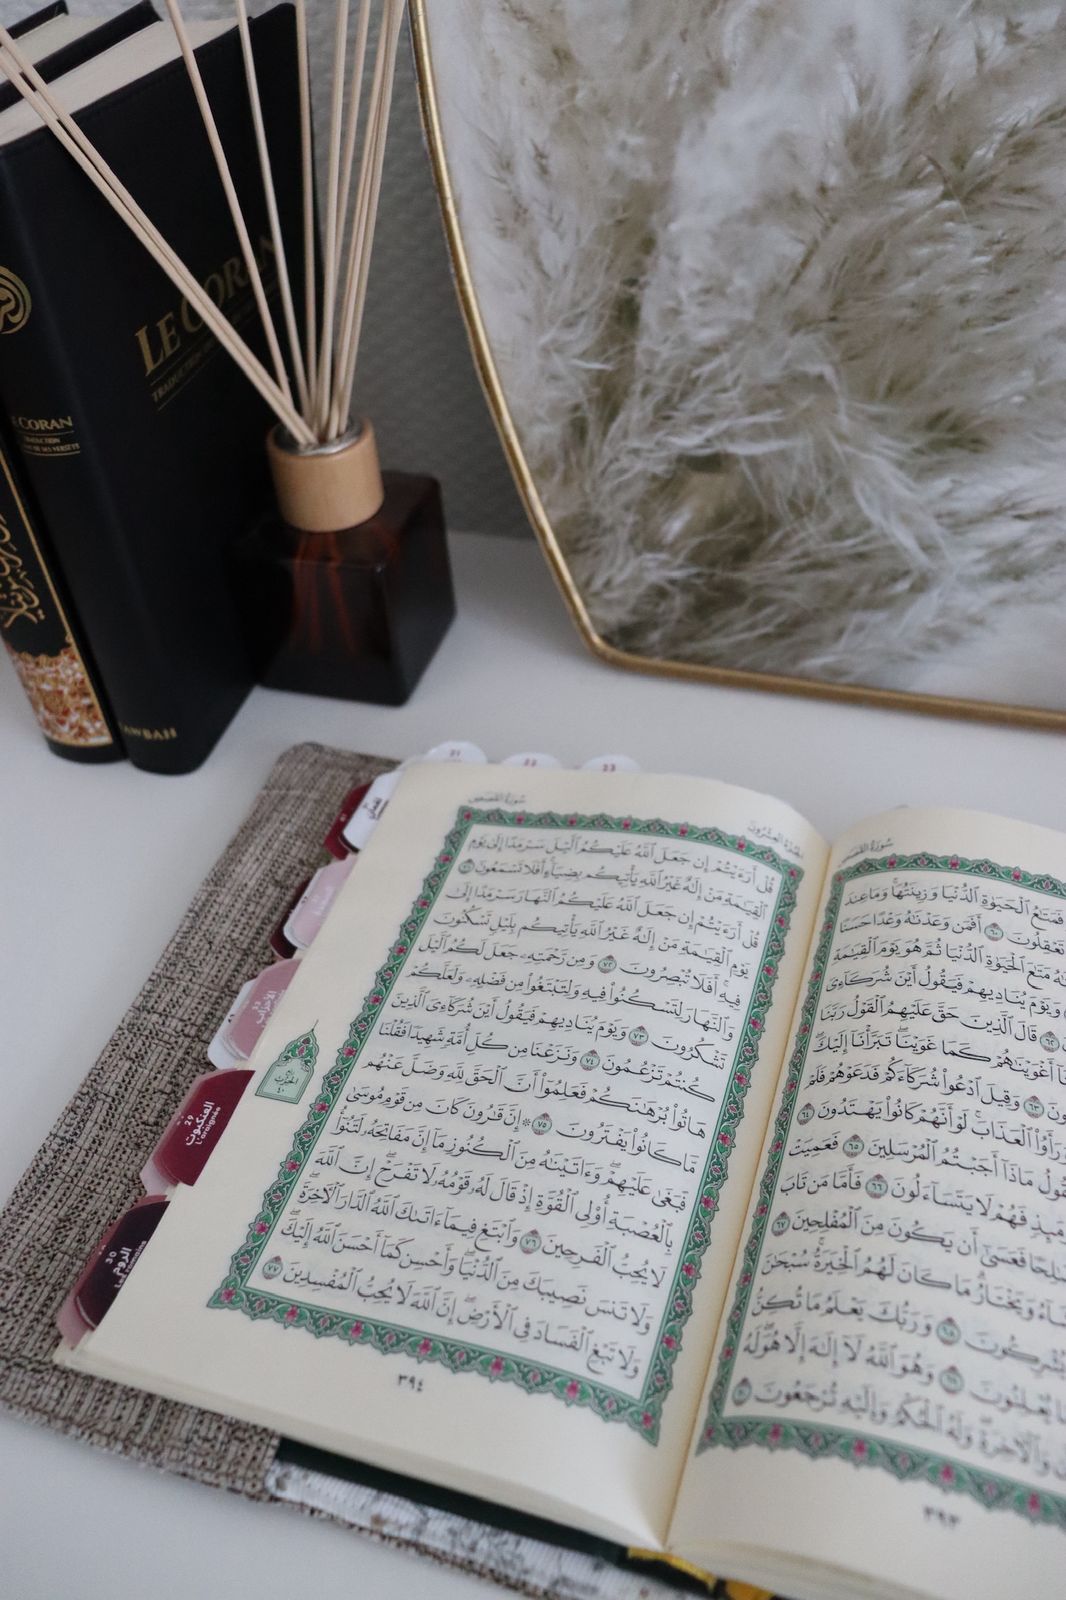 LE CORAN
LE CORAN
TRADUCTION
TRADUCTION
TAWBAH
21
22
23
٢٩
العنكبوت
L'araignée
٣٠
الروم
الأحزاب
سُورَةُ القَصَصِ
الجُزْءُ العِشْرُونَ
قُلْ أَرَءَيْتُمْ إِن جَعَلَ ٱللَّهُ عَلَيْكُمُ ٱلَّيْلَ سَرْمَدًا إِلَىٰ يَوْمِ
ٱلْقِيَٰمَةِ مَنْ إِلَٰهٌ غَيْرُ ٱللَّهِ يَأْتِيكُم بِضِيَآءٍ أَفَلَا تَسْمَعُونَ ٧١
قُلْ أَرَءَيْتُمْ إِن جَعَلَ ٱللَّهُ عَلَيْكُمُ ٱلنَّهَارَ سَرْمَدًا إِلَىٰ
يَوْمِ ٱلْقِيَٰمَةِ مَنْ إِلَٰهٌ غَيْرُ ٱللَّهِ يَأْتِيكُم بِلَيْلٍ تَسْكُنُونَ
فِيهِ أَفَلَا تُبْصِرُونَ ٧٢ وَمِن رَّحْمَتِهِۦ جَعَلَ لَكُمُ ٱلَّيْلَ
وَٱلنَّهَارَ لِتَسْكُنُوا۟ فِيهِ وَلِتَبْتَغُوا۟ مِن فَضْلِهِۦ وَلَعَلَّكُمْ
تَشْكُرُونَ ٧٣ وَيَوْمَ يُنَادِيهِمْ فَيَقُولُ أَيْنَ شُرَكَآءِىَ ٱلَّذِينَ
كُنتُمْ تَزْعُمُونَ ٧٤ وَنَزَعْنَا مِن كُلِّ أُمَّةٍ شَهِيدًا فَقُلْنَا
هَاتُوا۟ بُرْهَٰنَكُمْ فَعَلِمُوٓا۟ أَنَّ ٱلْحَقَّ لِلَّهِ وَضَلَّ عَنْهُم
مَّا كَانُوا۟ يَفْتَرُونَ ٧٥ ۞ إِنَّ قَٰرُونَ كَانَ مِن قَوْمِ مُوسَىٰ
فَبَغَىٰ عَلَيْهِمْ وَءَاتَيْنَٰهُ مِنَ ٱلْكُنُوزِ مَآ إِنَّ مَفَاتِحَهُۥ لَتَنُوٓأُ
بِٱلْعُصْبَةِ أُو۟لِى ٱلْقُوَّةِ إِذْ قَالَ لَهُۥ قَوْمُهُۥ لَا تَفْرَحْ إِنَّ ٱللَّهَ
لَا يُحِبُّ ٱلْفَرِحِينَ ٧٦ وَٱبْتَغِ فِيمَآ ءَاتَىٰكَ ٱللَّهُ ٱلدَّارَ ٱلْءَاخِرَةَ
وَلَا تَنسَ نَصِيبَكَ مِنَ ٱلدُّنْيَا وَأَحْسِن كَمَآ أَحْسَنَ ٱللَّهُ إِلَيْكَ
وَلَا تَبْغِ ٱلْفَسَادَ فِى ٱلْأَرْضِ إِنَّ ٱللَّهَ لَا يُحِبُّ ٱلْمُفْسِدِينَ ٧٧
٣٩٤
سُورَةُ القَصَصِ
فَمَتَٰعُ ٱلْحَيَوٰةِ ٱلدُّنْيَا وَزِينَتُهَا وَمَا عِندَ
تَعْقِلُونَ ٦٠ أَفَمَن وَعَدْنَٰهُ وَعْدًا حَسَنًا
مَتَٰعَ ٱلْحَيَوٰةِ ٱلدُّنْيَا ثُمَّ هُوَ يَوْمَ ٱلْقِيَٰمَةِ
وَيَوْمَ يُنَادِيهِمْ فَيَقُولُ أَيْنَ شُرَكَآءِىَ
٦٢ قَالَ ٱلَّذِينَ حَقَّ عَلَيْهِمُ ٱلْقَوْلُ رَبَّنَا
أَغْوَيْنَٰهُمْ كَمَا غَوَيْنَا تَبَرَّأْنَآ إِلَيْكَ
٦٣ وَقِيلَ ٱدْعُوا۟ شُرَكَآءَكُمْ فَدَعَوْهُمْ فَلَمْ
وَرَأَوُا۟ ٱلْعَذَابَ لَوْ أَنَّهُمْ كَانُوا۟ يَهْتَدُونَ ٦٤
مَاذَآ أَجَبْتُمُ ٱلْمُرْسَلِينَ ٦٥ فَعَمِيَتْ
فَهُمْ لَا يَتَسَآءَلُونَ ٦٦ فَأَمَّا مَن تَابَ
فَعَسَىٰٓ أَن يَكُونَ مِنَ ٱلْمُفْلِحِينَ ٦٧
وَيَخْتَارُ مَا كَانَ لَهُمُ ٱلْخِيَرَةُ سُبْحَٰنَ
يُشْرِكُونَ ٦٨ وَرَبُّكَ يَعْلَمُ مَا تُكِنُّ
يُعْلِنُونَ ٦٩ وَهُوَ ٱللَّهُ لَآ إِلَٰهَ إِلَّا هُوَ لَهُ
وَٱلْءَاخِرَةِ وَلَهُ ٱلْحُكْمُ وَإِلَيْهِ تُرْجَعُونَ ٧٠
٣٩٣